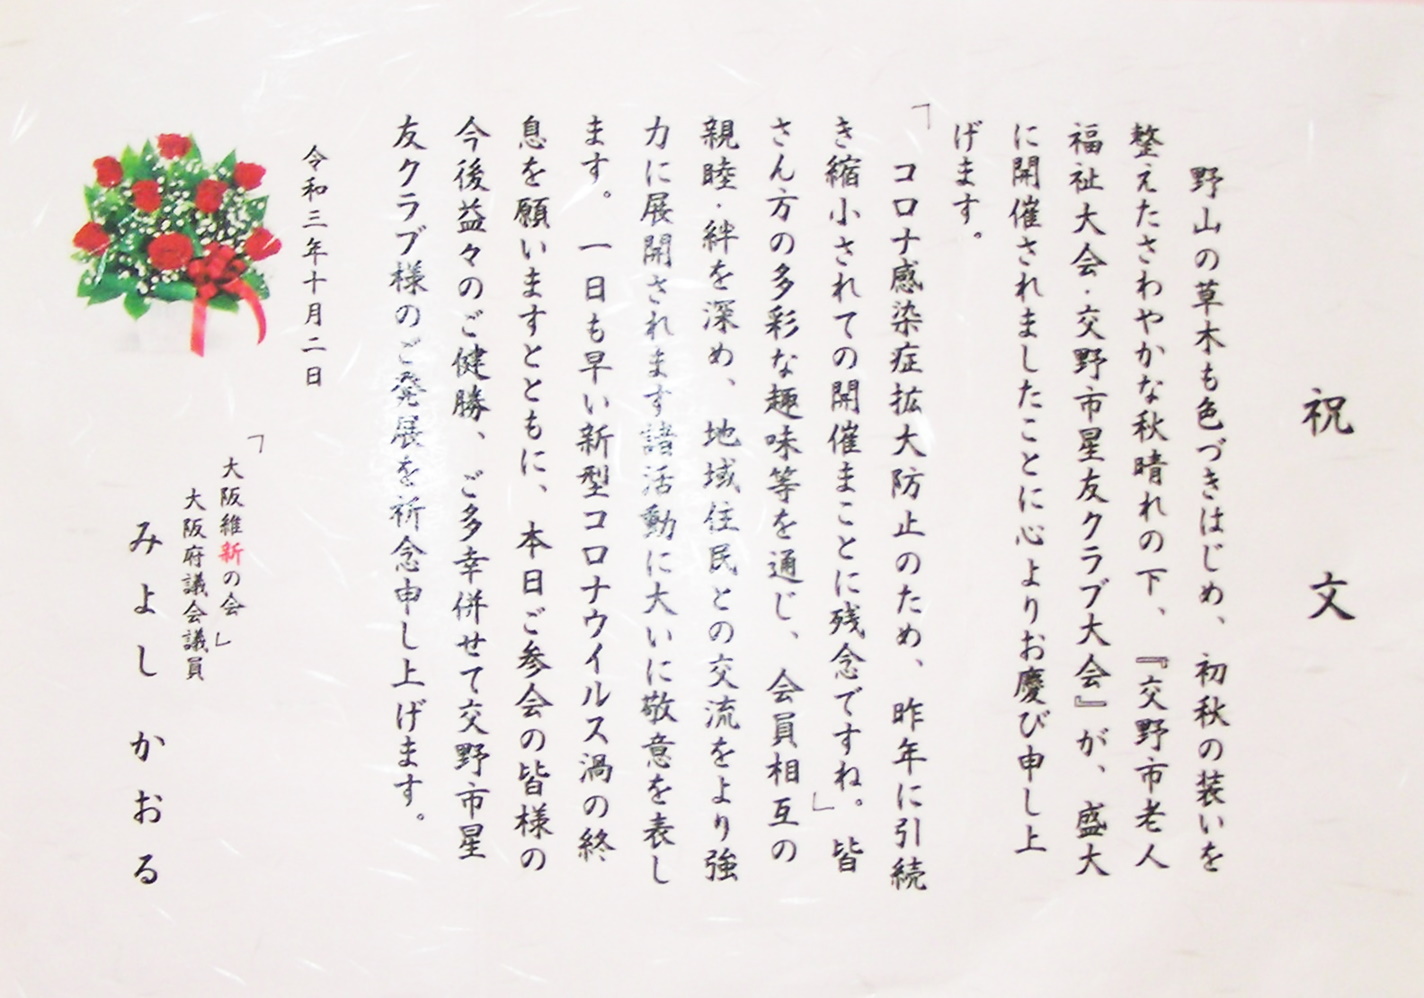 祝 文
野山の草木も色づきはじめ、初秋の装いを
整えたさわやかな秋晴れの下、『交野市老人
福祉大会・交野市星友クラブ大会』が、盛大
に開催されましたことに心よりお慶び申し上
げます。
「コロナ感染症拡大防止のため、昨年に引続
き縮小されての開催まことに残念ですね。」皆
さん方の多彩な趣味等を通じ、会員相互の
親睦・絆を深め、地域住民との交流をより強
力に展開されます諸活動に大いに敬意を表し
ます。一日も早い新型コロナウイルス渦の終
息を願いますとともに、本日ご参会の皆様の
今後益々のご健勝、ご多幸併せて交野市星
友クラブ様のご発展を祈念申し上げます。
令和三年十月二日
「大阪維新の会」
大阪府議会議員
みよし かおる